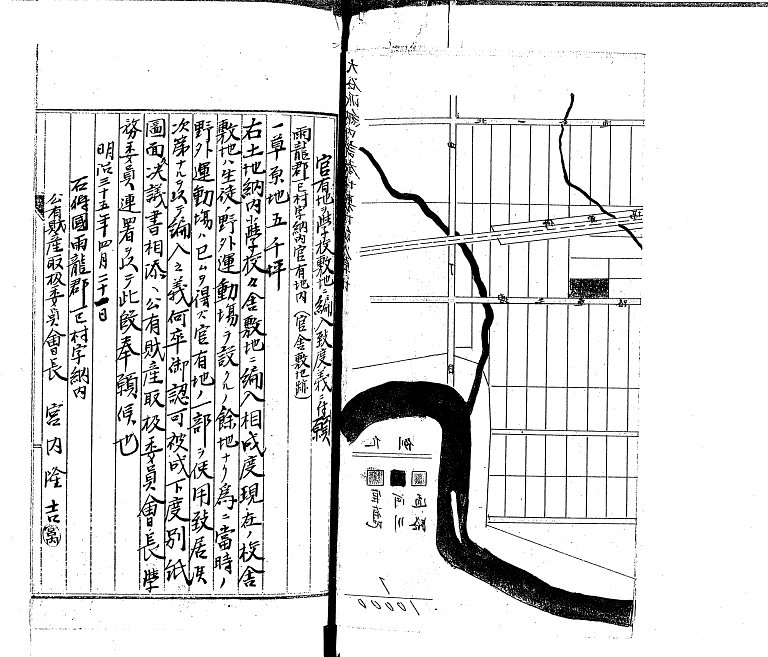 官有地ヲ學校敷地ニ編入致度義ニ付願
雨龍郡一已村字納内官有地内（官舎敷地跡）
一草原地五千坪
右土地納内小學校々舎敷地ニ編入相成度現在ノ校舎
敷地ハ生徒ノ野外運動場ヲ設クルノ餘地ナク為ニ當時ノ
野外運動場ハ已ムヲ得ズ官有地ノ一部ヲ使用致居候
次第ナルヲ以テ編入之義何卒御認可被成下度別紙
圖面決議書相添ヘ公有財産取扱委員會長學
務委員連署以テ此段奉願候也
明治三十五年四月二十一日
石狩國雨龍郡一已村字納内
公有財産取扱委員會長 宮内隆吉
凡例
道路
河川
官有地
1/10000